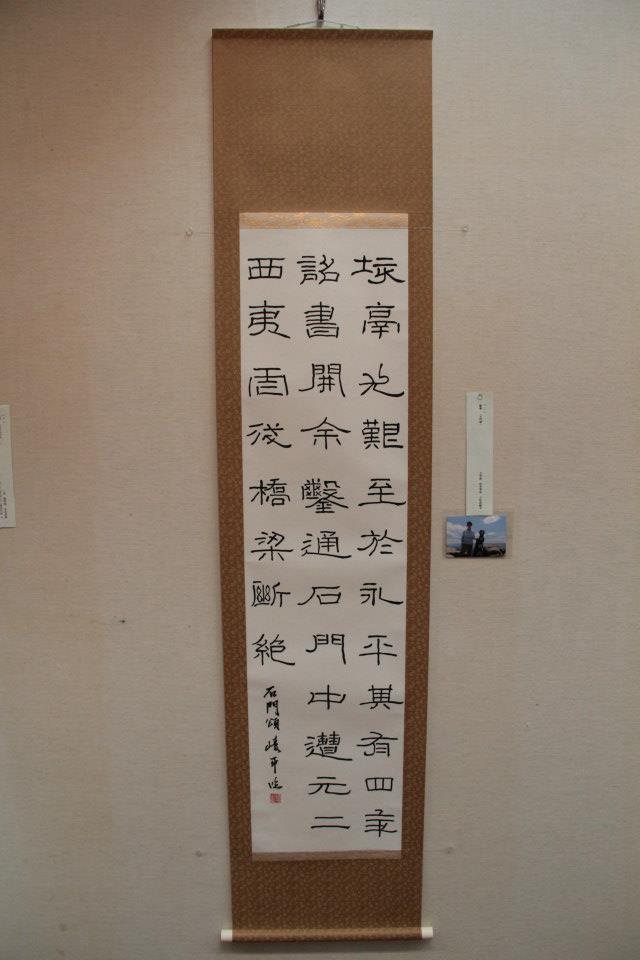 垓鬲尤艱至於永平其有四年
詔書開余鑿通石門中遭元二
西夷虐殘橋梁斷絶
石門頌